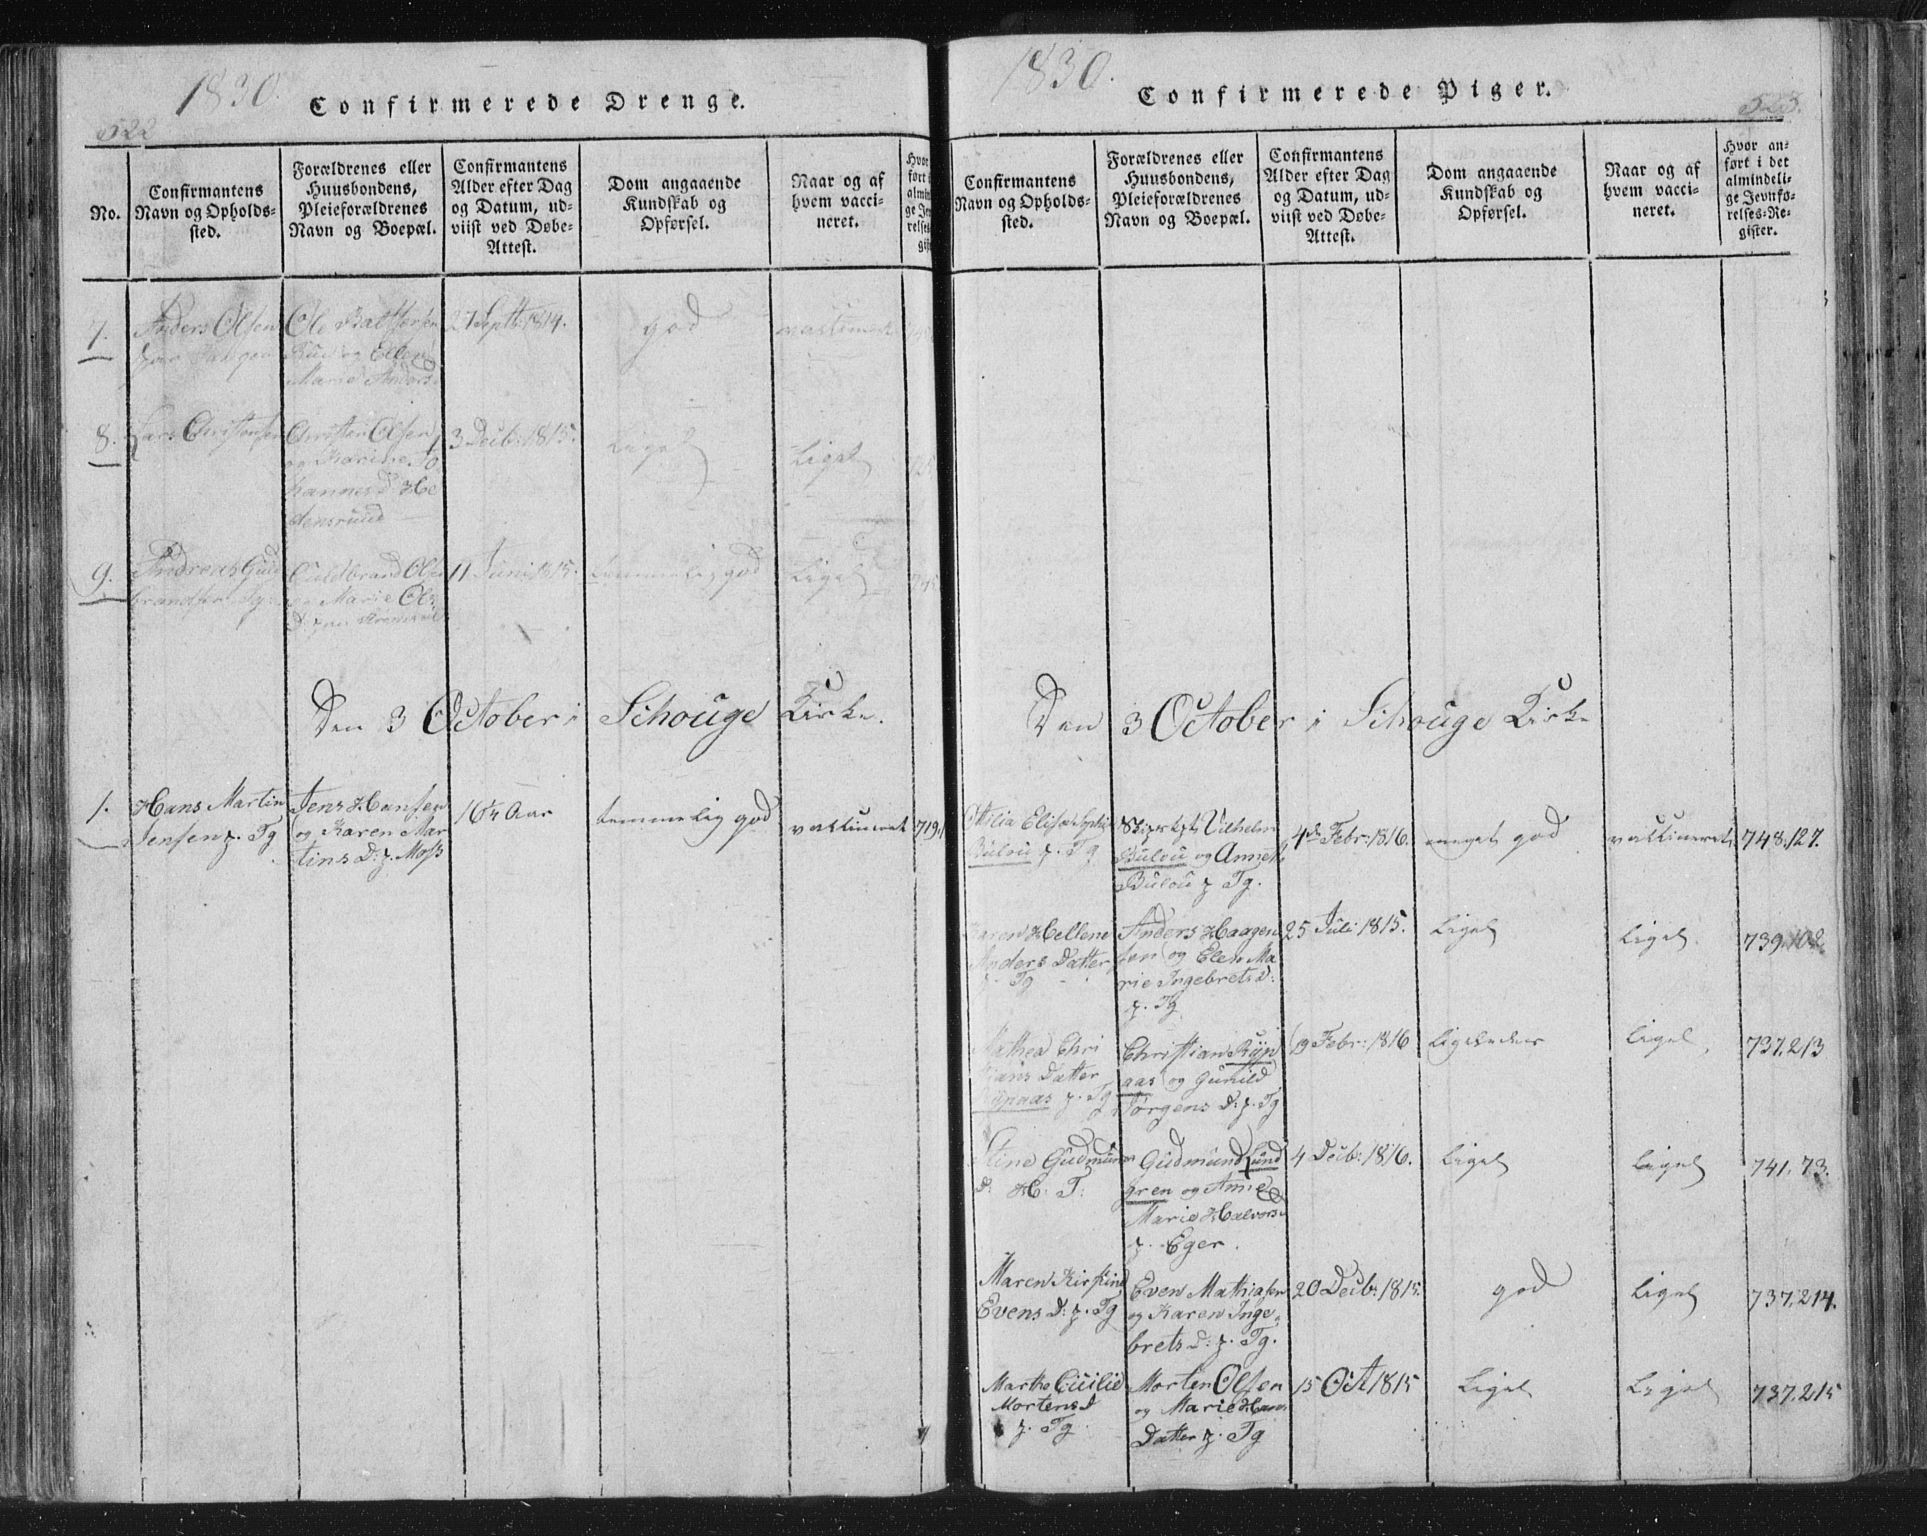 1830.
Confirmerede Drenge.
522
No.
Confirmantens
Navn og Opholds-
sted.
Forældrenes eller
Huusbondens,
Pleieforældrenes
Navn og Boepæl.
Confirmantens
Alder efter Dag
og Datum, ud-
viist ved Døbe-
Attest.
Dom angaaende
Kundskab og
Opførsel.
Naar og af
hvem vacci-
neret.
7.
Anders Olsen
Ole
og Ellen
Marie Anders
27 Septb: 1814.
god
vaccineret
8.
Lars Christensen
Christen Olsen
og Karine Jo
hannes D He
densruud
3 Decb: 1815.
Ligel
Ligel
9.
Andreas Guld
brandsen
Guldbrand Olsen
og Marie Ols
11 Juni 1815.
temmelig god
Ligel
Den 3 October i Schouge Kirke.
1.
Hans Martin
Jensen p. Tg
Jens Hansen
og Karen Mar
tins D: p. Moss
16 Aar
temmelig god
vaccineret
719,
1830.
Confirmerede Piger.
523.
Confirmantens
Navn og Opholds-
sted.
Forældrenes eller
Huusbondens,
Pleieforældrenes
Navn og Boepæl.
Confirmantens
Alder efter Dag
og Datum, ud-
viist ved Døbe-
Attest.
Dom angaaende
Kundskab og
Opførsel.
Naar og af
hvem vacci-
neret.
Hvor an-
ført i det
almindeli-
ge Jevnfø-
relses-Re-
gister.
Den 3 October i Schouge Kirke
Ottilia
Bülou p. Tg
Vilhelm
Bülou og Anne
Bülou p Tg.
4de Febr: 1816.
meget god
vaccineret
748.127.
Karen Hellene
Anders Datter
p. Tg
Anders Haagen
sen og Elen Ma
rie Ingebrets D:
p. Tg
25 Juli 1815.
Ligel
Ligel.
739.102
Mathea Chri
stians Datter
Rypaas p. Tg
Christian Ryp
aas og Gunild
Jørgens D: p. Tg
19 Febr: 1816
Ligeledes
Ligel.
737.213
Stine Gudmun
D: H: T:
Gudmund Lund
gren og Anne
Marie Halvors
p. Eger.
4 Decb: 1816.
Ligel
Ligel
741.73.
Maren Kirstine
Evens D: p. Tg
Even Mathiasen
og Karen Inge
brets D: p. Tg.
20 Decb: 1815.
god
Ligel
737.214.
Marthe Cicilie
Mortens D
p. Tg
Morten Olsen
og Marie Hans
Datter p. Tg
15 Oct 1815
Ligel
Ligel
737.215